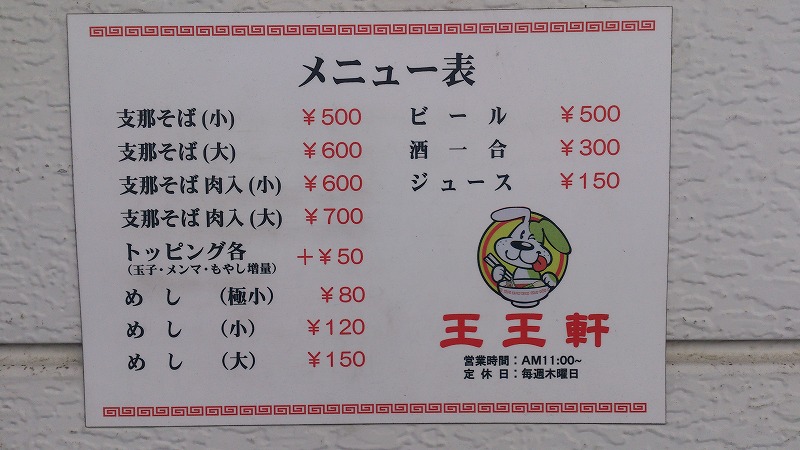 メニュー表
支那そば(小) ¥500
支那そば(大) ¥600
支那そば 肉入(小) ¥600
支那そば 肉入(大) ¥700
トッピング各 +¥50
(玉子・メンマ・もやし増量)
めし (極小) ¥80
めし (小) ¥120
めし (大) ¥150
ビール ¥500
酒一合 ¥300
ジュース ¥150
王王軒
営業時間:AM11:00~
定休日:毎週木曜日